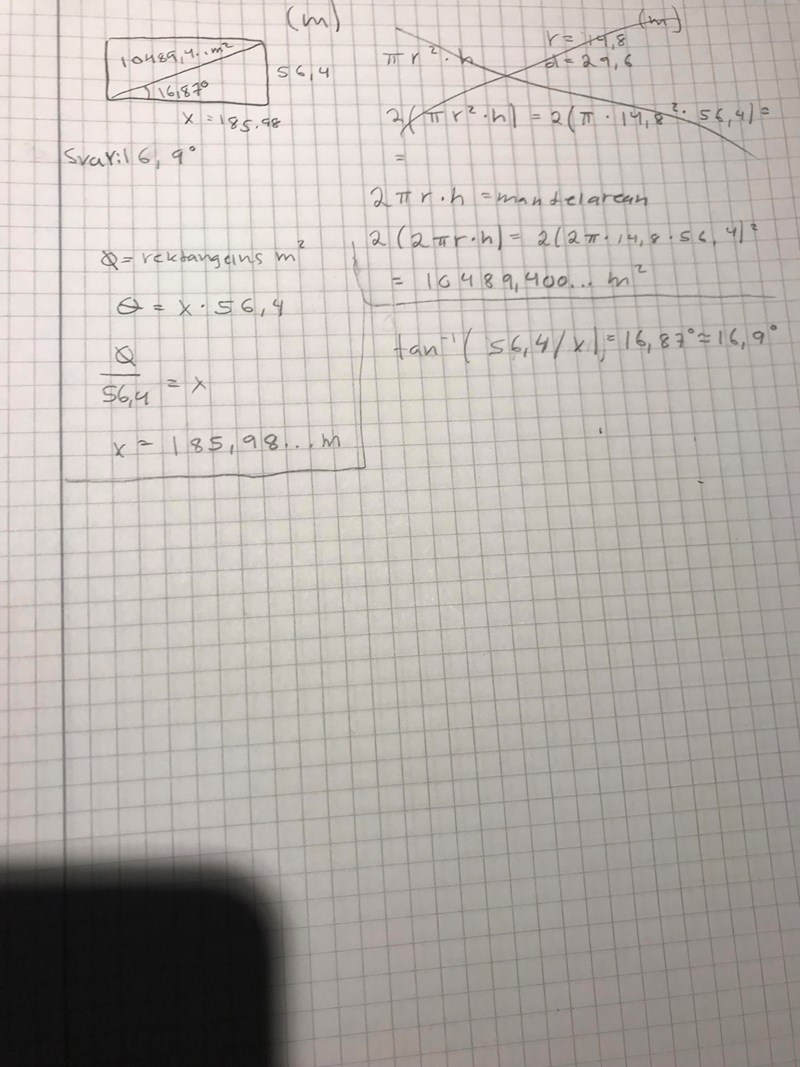 (m)
10489,4..m²
16,87°
56,4
x = 185.98
Svar: 16,9°
Q = rektangelns m²
Q = x · 56,4
Q
56,4 = x
x = 185,98... m
(m)
r = 14,8
d = 29,6
π r² · h
2(π r² · h) = 2(π · 14,8² · 56,4) =
=
2 π r · h = mantelarean
2 (2πr·h) = 2(2π · 14,8 · 56,4) =
= 10489,400... m²
tan⁻¹( 56,4/x) = 16,87° ≈ 16,9°